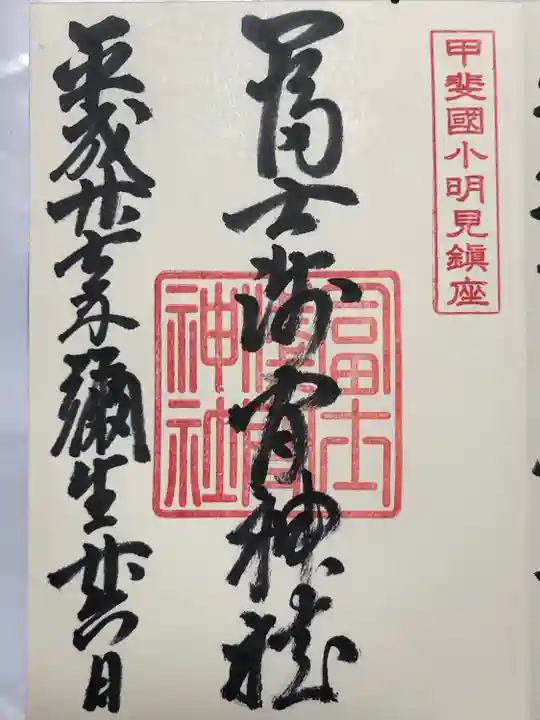 甲斐國小明見鎭座
冨士浅間神社
冨士
淺間
神社
平成廿七年彌生廿日